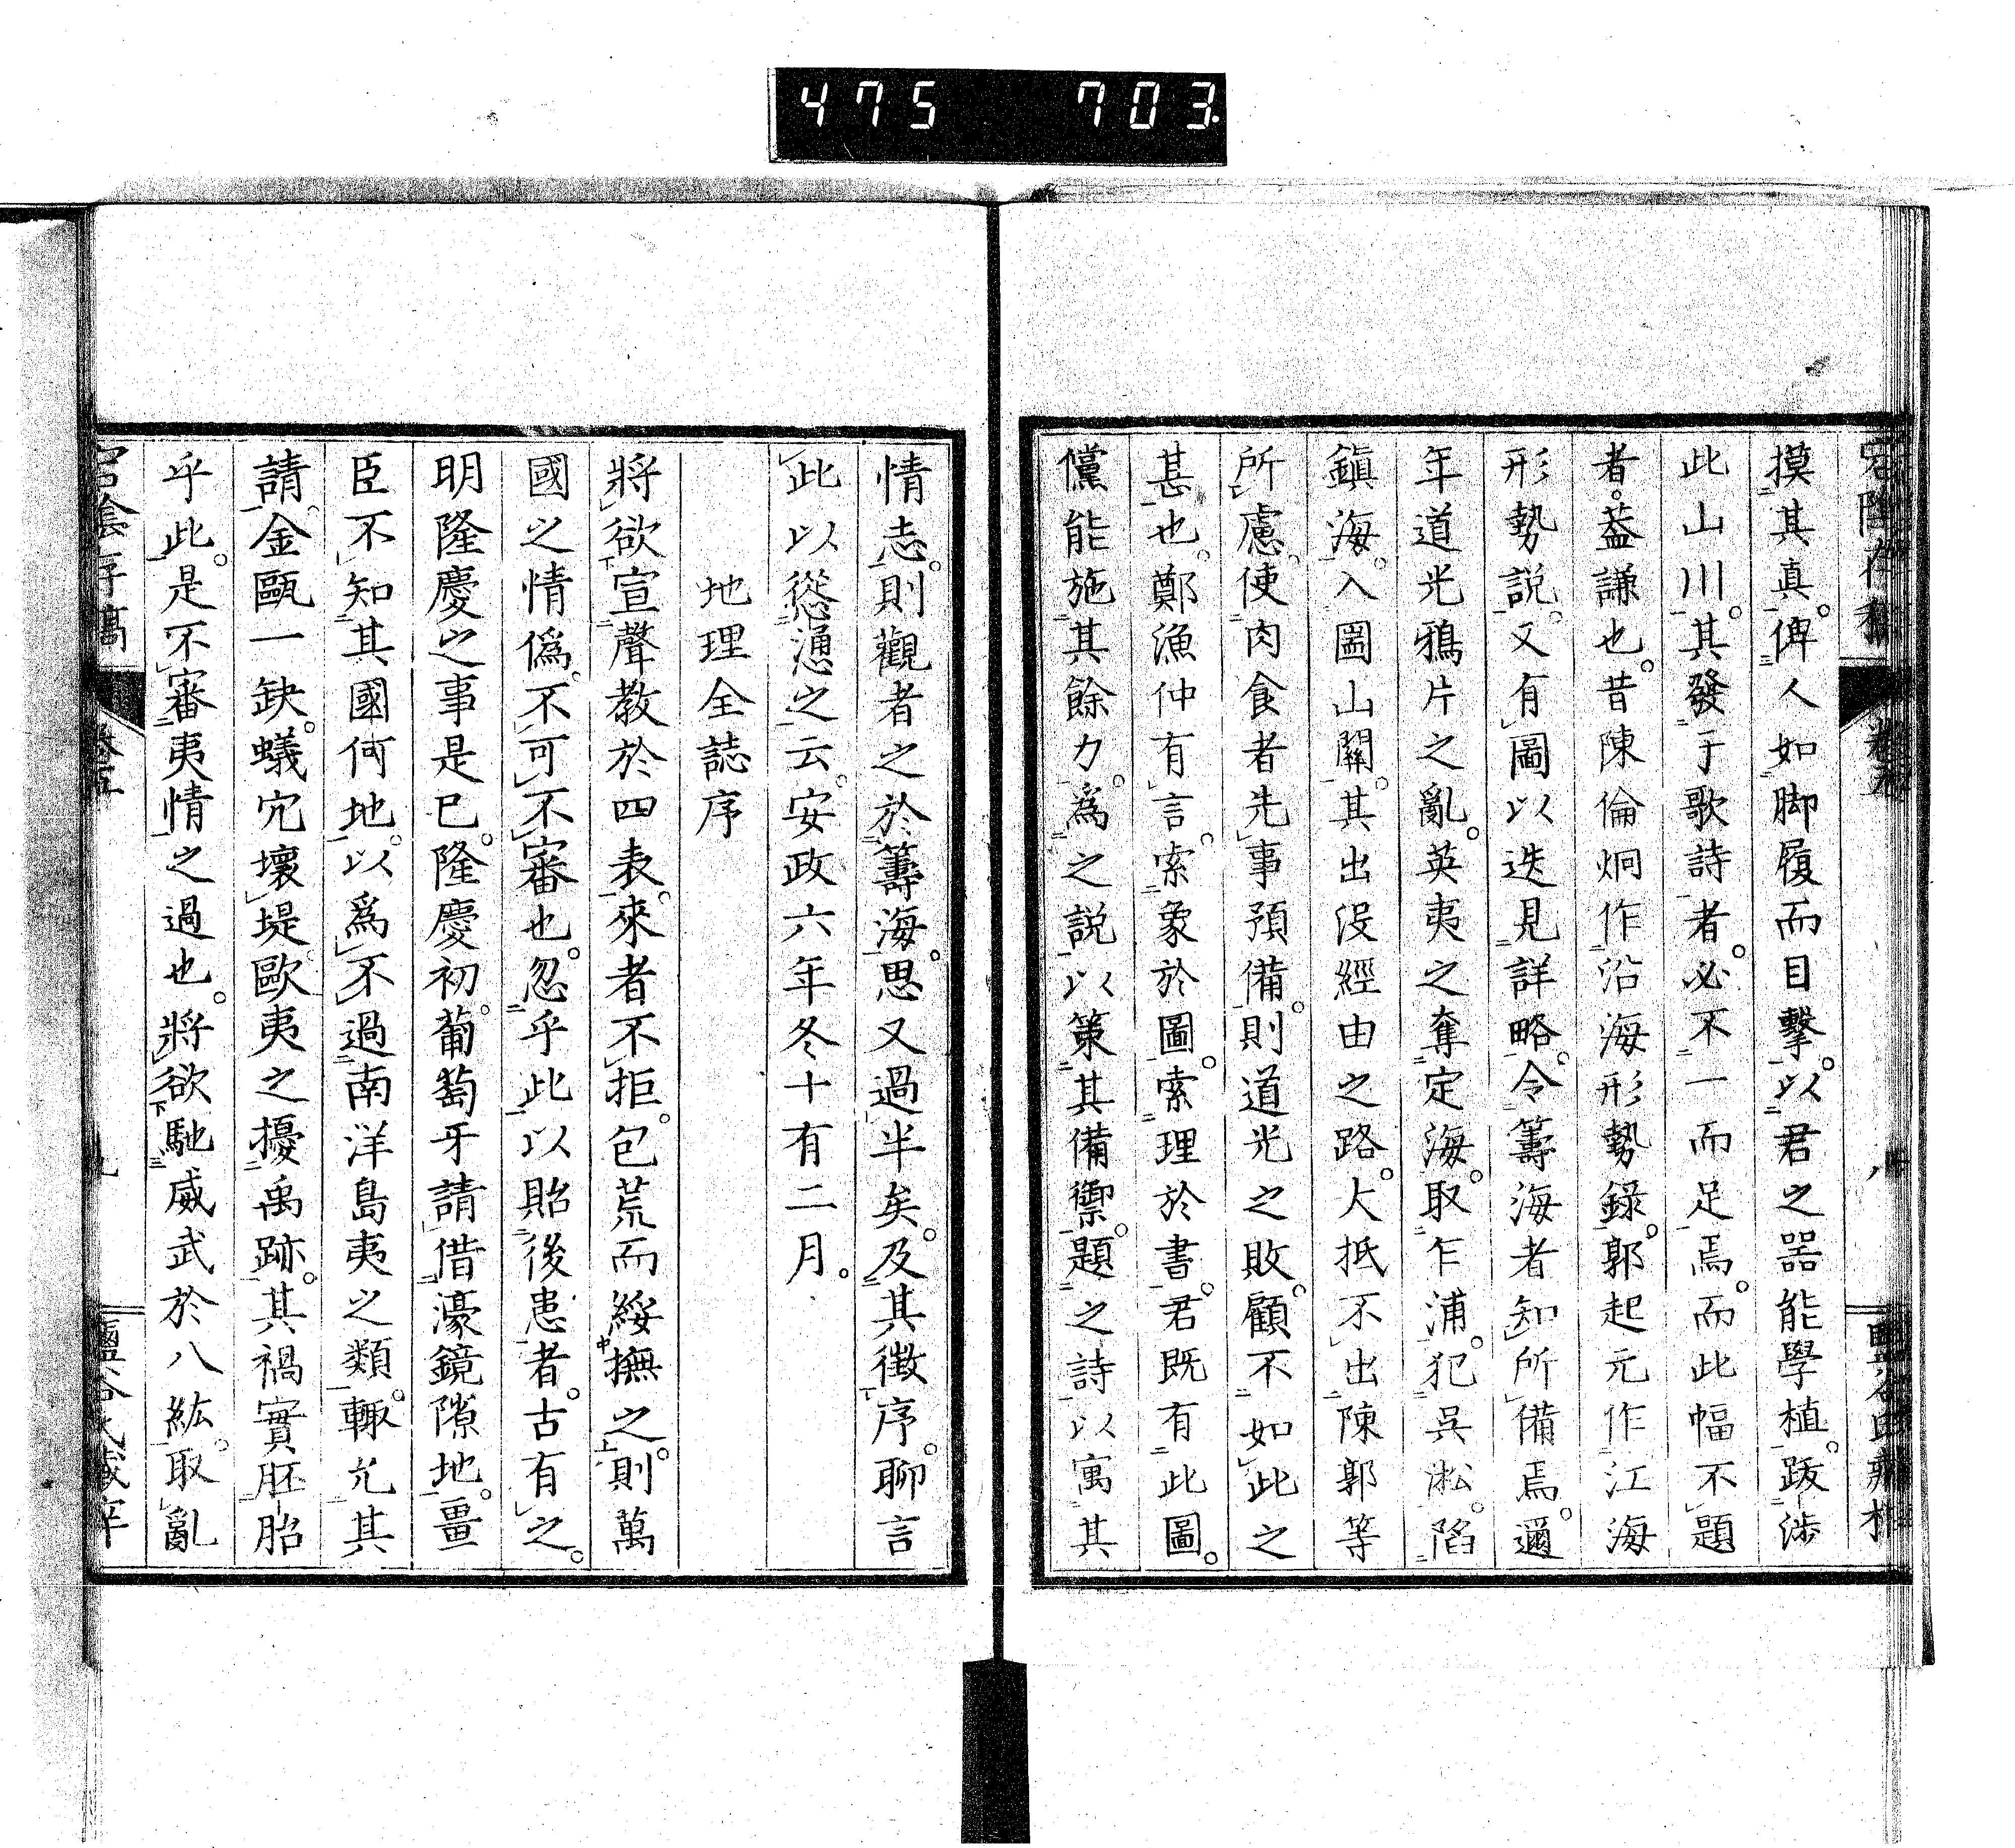 475 703
摸其真。俾人如脚履而目擊。以君之器能學植。跋渉
此山川。其發于歌詩者。必不一而足焉。而此幅不題
者。葢謙也。昔陳倫炯作沿海形勢錄。郭起元作江海
形勢説。又有圖以迭見詳略。令籌海者知所備焉。邇
年道光鴉片之亂。英夷之奪定海。取乍浦。犯呉淞。陷
鎭海。入圌山關。其出没經由之路。大抵不出陳郭等
所慮。使肉食者先事預備。則道光之敗。顧不如此之
甚也。鄭漁仲有言。索象於圖。索理於書。君既有此圖。
儻能施其餘力。為之説以策其備禦。題之詩以寓其
情志。則觀者之於籌海。思又過半矣。及其徴序。聊言
此以慫慂之云。安政六年冬十有二月。
地理全誌序
將欲宣聲教於四表。來者不拒。包荒而綏撫之。則萬
國之情僞。不可不審也。忽乎此以貽後患者。古有之。
明隆慶之事是已。隆慶初。葡萄牙請借濠鏡隙地。畺
臣不知其國何地。以爲不過南洋島夷之類。輙允其
請。金甌一缺。蟻宂壞堤。歐夷之擾禹跡。其禍實胚胎
乎此。是不審夷情之過也。將欲馳威武於八紘。取亂